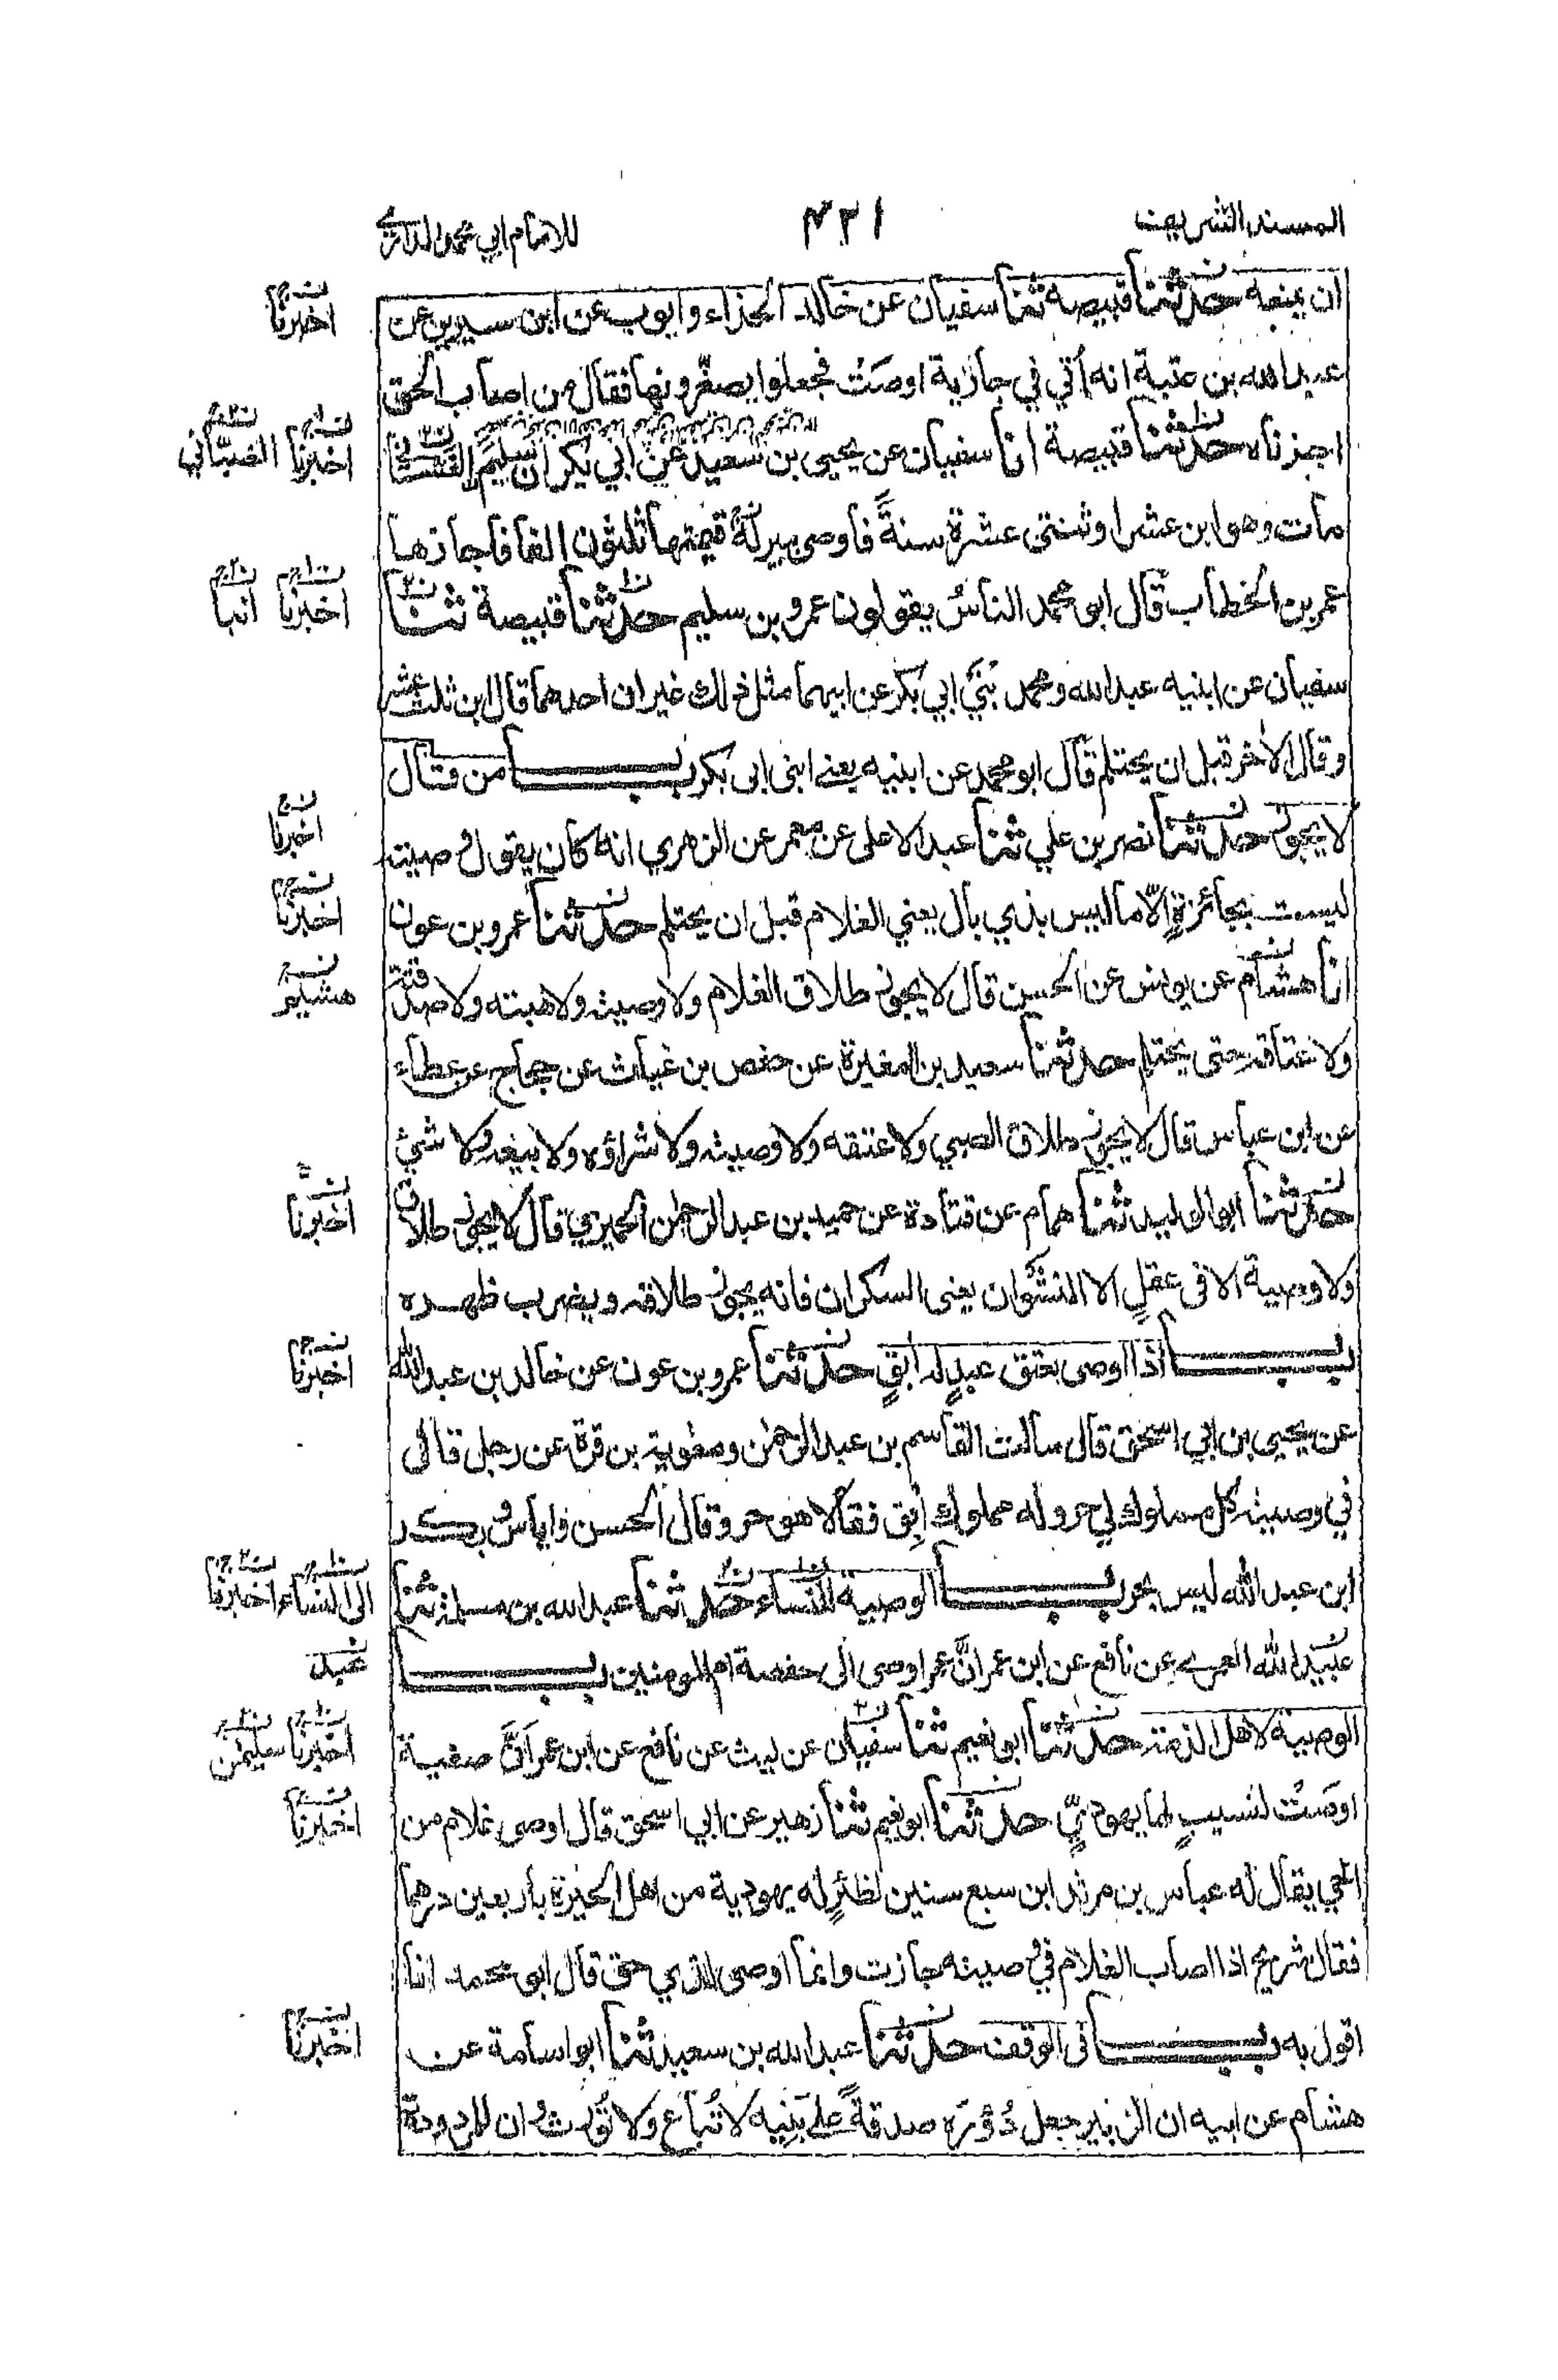 المسند الشريف
٤٢١
للامام ابي محمد الدارمي
ان يمنعه حدثنا قبيصة ثنا سفيان عن خالد الحذاء وايوب عن ابن سيرين عن
اخبرنا
عبد الله بن عتبة انه أتي في جارية اوصَتْ فجعلوا يصغّرونها فقال من اصاب الحق
اجزناه حدثنا قبيصة انا سفيان عن يحيى بن سعيد عن ابي بكر ان سليم الغساني
اخبرنا الضبّاني
مات وهو ابن عشر او ثنتي عشرة سنةً فاوصى ببير لهٗ قيمتها ثلثون الفا فاجازها
عمر بن الخطاب قال ابو محمد الناسُ يقولون عمرو بن سليم حدثنا قبيصة ثنا
اخبرنا انبا
سفيان عن ابنيه عبد الله ومحمد بَنَي ابي بكر عن ابيهما مثل ذلك غير ان احدهما قال ابن ثلث عشر
وقال الاخر قبل ان يحتلم قال ابو محمد عن ابنيه يعني ابني ابي بكر باب من قال
لا يجوز حدثنا نصر بن علي ثنا عبد الاعلى عن معمر عن الزهري انه كان يقول وصيته
اخبرنا
ليست بجائزةٍ الّا ما ليس بذي بال يعني الغلام قبل ان يحتلم حدثنا عمرو بن عون
اخبرنا
انا هشام عن يونس عن الحسن قال لا يجوز طلاق الغلام ولا وصيته ولا هبته ولا صدقته
هشيم
ولا عتاقه حتى يحتلم حدثنا سعيد بن المغيرة عن حفص بن غياث عن حجاج عن عطاء
عن ابن عباس قال لا يجوز طلاق الصبي ولا عتقه ولا وصيته ولا شراؤه ولا بيعه ولا شيئ
حدثنا ابو الوليد ثنا همام عن قتادة عن حميد بن عبد الرحمٰن الحميري قال لا يجوز طلاق
اخبرنا
ولا وصية الا في عقلٍ الا النشوان يعنى السكران فانه يجوز طلاقه ويضرب ظهره
باب اذا اوصى بعتق عبدٍ له ابقٍ حدثنا عمرو بن عون عن خالد بن عبد الله
اخبرنا
عن يحيى بن ابي اسحق قال سالت القاسم بن عبد الرحمٰن ومعٰوية بن قرة عن رجل قال
في وصيته كل مملوك لي حر وله مملوك ابق فقالا هو حر وقال الحسن واياسٌ وبكر
ابن عبد الله ليس بحر باب الوصية للنساء حدثنا عبد الله بن مسلمة ثنا
الى النساء اخبرنا
عبيد الله العمري عن نافع عن ابن عمر انَّ عمر اوصى الى حفصة ام المومنين باب
عبد
الوصية لاهل الذمة حدثنا ابو نعيم ثنا سفيان عن ليث عن نافع عن ابن عمر اَنَّ صفية
اخبرنا سليمٰن
اوصَتْ لنسيبٍ لها يهوديٍّ حدثنا ابو نعيم ثنا زهير عن ابي اسحق قال اوصى غلام من
اخبرنا
الحي يقال له عباس بن مرثد ابن سبع سنين لظئرٍ له يهودية من اهل الحيرة باربعين درهما
فقال شريح اذا اصاب الغلام في وصيته جازت وانما اوصى لذي حق قال ابو محمد انا
اقول به باب في الوقف حدثنا عبد الله بن سعيد ثنا ابو اسامة عن
اخبرنا
هشام عن ابيه ان الزبير جعل دُوْرَه صدقةً على بَنِيه لا تُباع ولا تُورث ان للمردودة